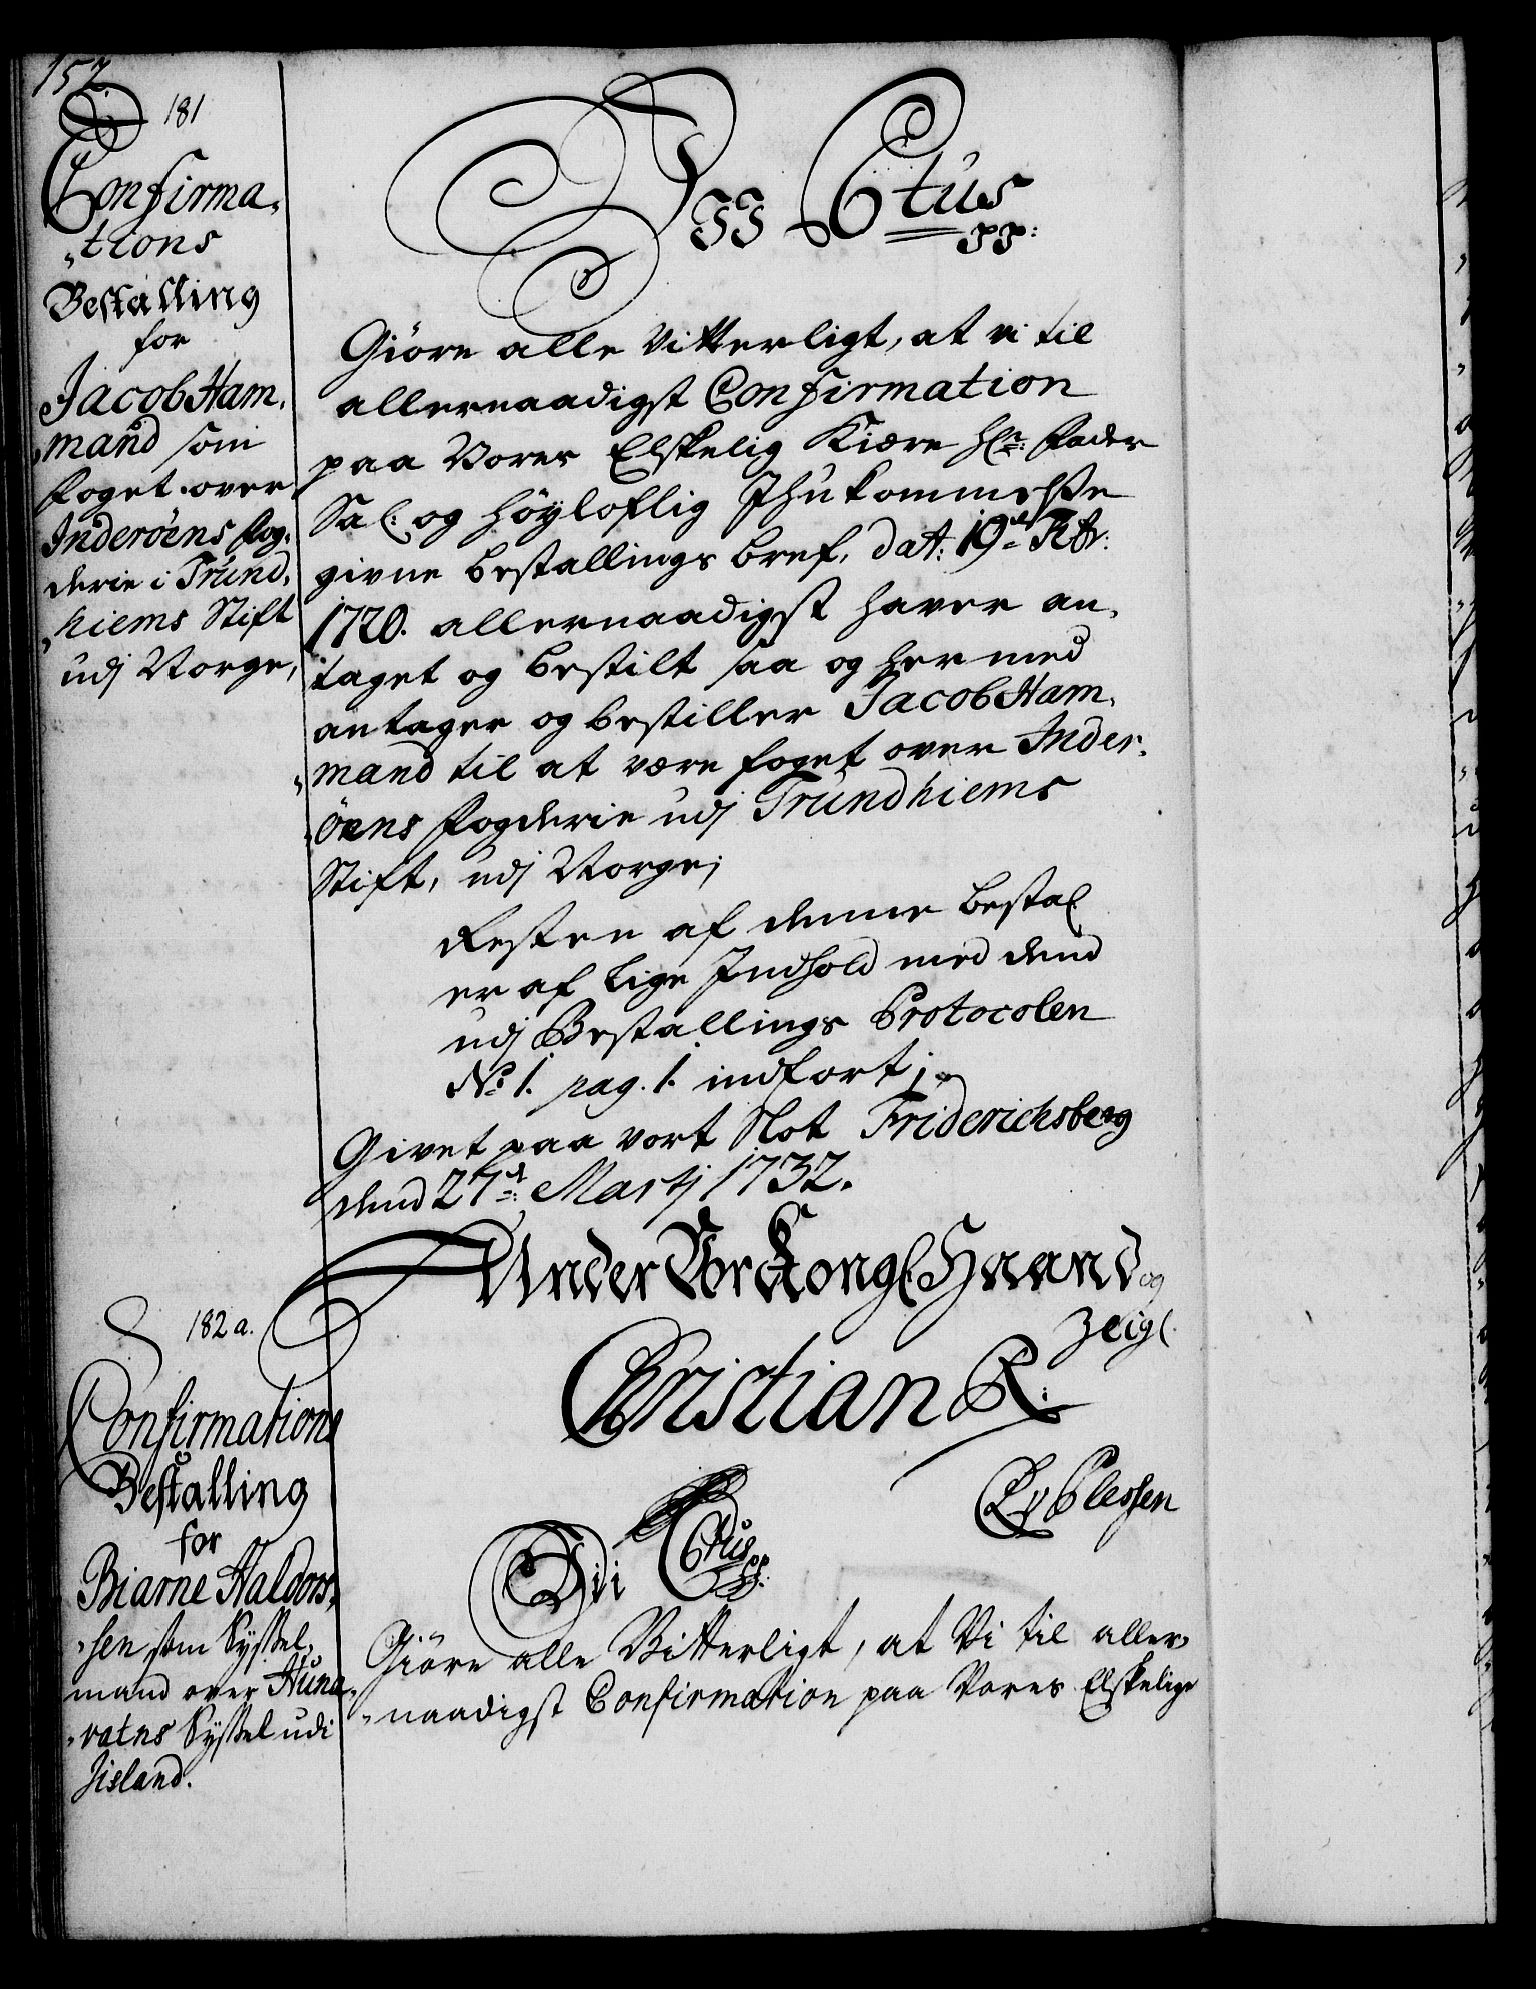 152.
181
Confirma-
tions
Bestalling
for
Jacob Ham-
mand som
foget over
Inderöens fog-
derie i Trund-
hiems Stift
udj Norge,
Vii C6tus
pp:
Giöre alle Vitterligt, at vi til
allernaadigst Confirmation
paa Vores Elskelig Kiære Hr: Fader
Sal: og Höyloflig Ihukommelse
givne bestallings bref, dat: 19de Febr:
1720. allernaadigst haver an-
taget og bestilt saa og hermed
antager og bestiller Jacob Ham-
mand til at være foget over Inder-
öens Fogderie udj Trundhiems
Stift, udj Norge;
Resten af denne bestal:
er af lige Indhold med dend
udj Bestallings Protocolen
No 1. pag. 1. indfört;
Givet paa vort Slot Friderichsberg
dend 27de: Martj 1732.
Under Vor Kongl: Haand og
Zeigl.
Christian R:
CAvPlessen
182 a.
Confirmations
Bestalling
for
Biarne Haldors-
sen som Syssel-
mand over Huna-
vatns Syssel udi
Jisland.
Vii C6tus
pp:
Giöre alle Vitterligt, at Vi til aller-
naadigst Confirmation paa Vores Elskelige